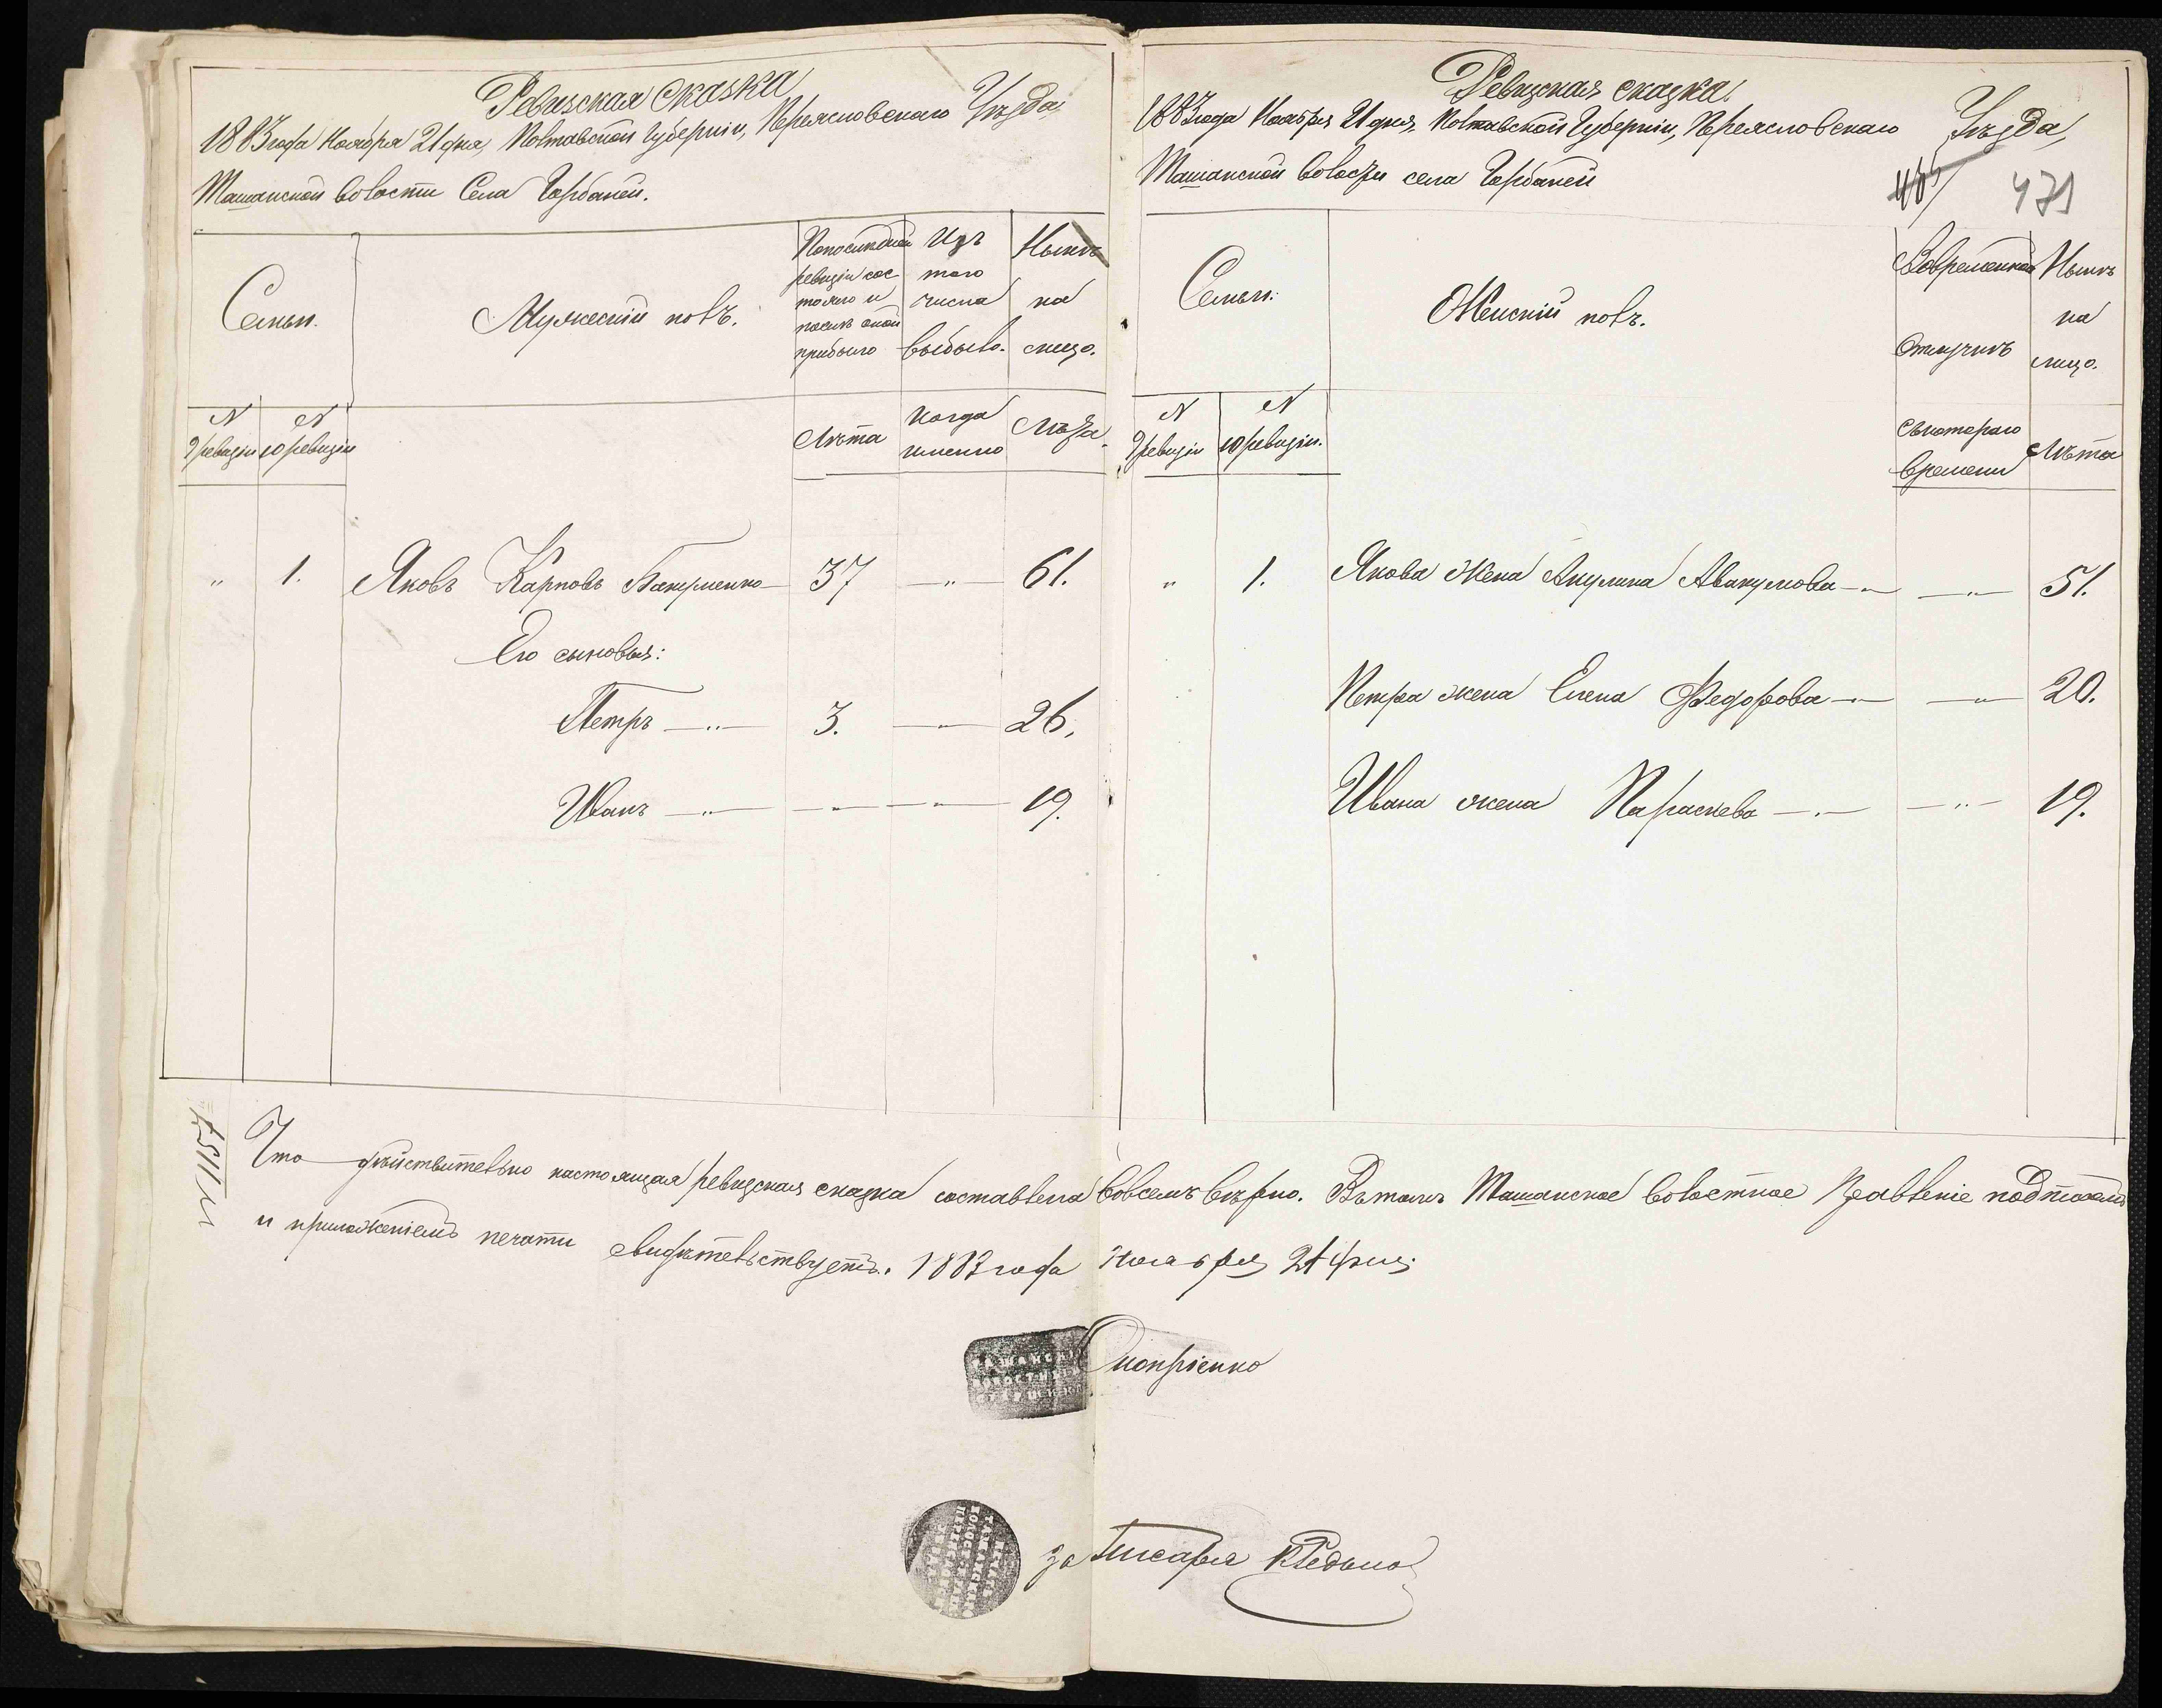 Ревизская сказка
1883 года Ноября 21 дня, Полтавской Губерніи, Переясловскаго Уѣзда,
Ташанской волости Села Горбаней.
Семьи.
Мужескій полъ.
По последней
ревизіи сос
тояло и
послѣ оной
прибыло
Изъ
того
числа
выбыло.
Нынѣ
на
лицо.
N
9 ревизіи
N
10 ревизіи
Лѣта
Когда
именно
Лѣта.
" 1. Яковъ Карповъ Бакуменко — 37 — " — 61.
Его сыновья:
Петръ — " — 3. — " — 26.
Иванъ — " — — " — — " — 19.
Ревизская сказка.
1883 года Ноября 21 дня, Полтавской Губерніи, Переясловскаго Уѣзда,
Ташанской волости села Горбаней
471
Семьи:
Женскій полъ.
Вовременной
Отлучкѣ
Нынѣ
на
лицо.
N
9 ревизіи
N
10 ревизіи.
Съ котораго
времени
Лѣта
" 1. Якова жена Акулина Авакумова — " — — " — 51.
Петра жена Елена Федорова — " — — " — 20.
Ивана жена Параскева — " — — " — 19.
Что действительно настоящая ревизская сказка составлена вовсемъ вѣрно. Въ томъ Ташанское волостное Правленіе подписомъ
и приложеніемъ печати свидѣтельствуетъ. 1883 года Ноября 21 дня.
Оноприенко
за Писаря